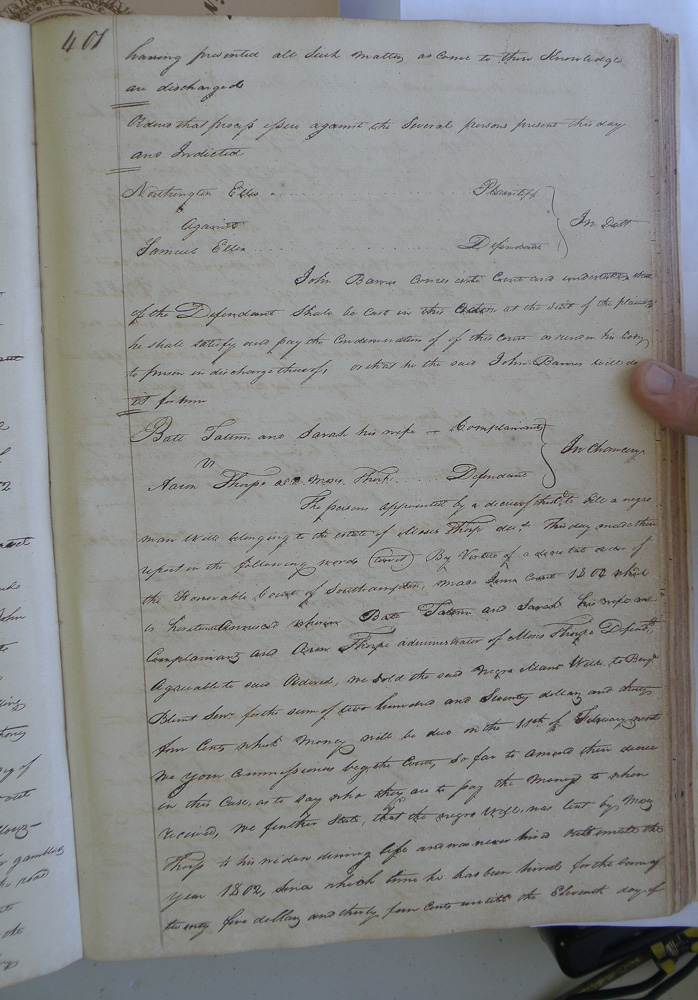 401
having presented all Such matters as Come to their Knowledge
are discharged
Ordered that process issue against the Several persons present this day
and Indicted
Northington Ellis Plaintiff
Against In Debt
Samuel Ellis Defendant
John Barnes comes into Court and undertakes that
if the Defendant Shall be Cast in this Action at the Suit of the plaintiff
he shall satisfy and pay the Condemnation of of this Court or render his body
to prison in discharge thereof, or that he the said John Barnes will do
it for him
Batt Tatum and Sarah his wife Complainants
vs In Chancery
Aaron Thorpe Moses Thorp Defendant
The persons appointed by a decree of to Sell a negro
man Will belonging to the estate of Moses Thorp decd. This day made their
report in the following words (towit) By Virtue of a decretal order of
the Honorable Court of Southampton, made June Court 1802 which
is hereunto Annexed wherein Batt Tatum and Sarah his wife are
Complainants and Aaron Thorpe administrator of Moses Thorpe Defendt.
Agreeable to said Ordered, we Sold the said Negro Man Will to Benja.
Blunt Senr. for the sum of two hundred and Seventy dollars and thirty
four Cents which Money will be due on the 11th of February next
We your Commissioners beg the Court, So far to amend their decree
in this Case, as to say who they are to pay the Money to when
received, We further State, that the negro Will, was lent by Moses
Thorp to his widow during life and was never hired out untill the
year 1802, Since which time he has been hired for the Sum of
twenty five dollars and thirty four Cents untill the Eleventh day of